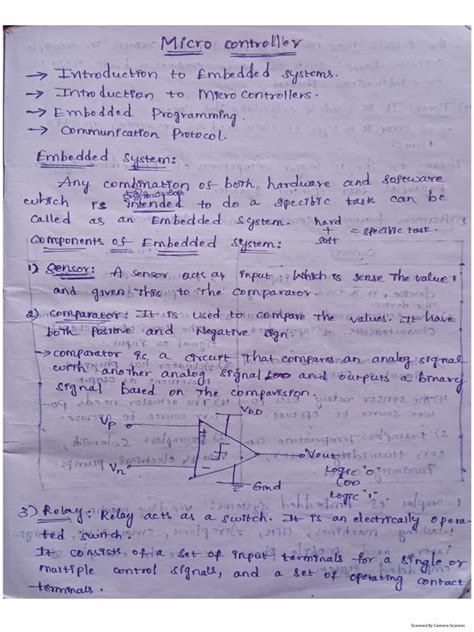 Micro controller
→ Introduction to Embedded systems.
→ Introduction to Microcontrollers.
→ Embedded Programming.
→ Communication Protocol.
Embedded System:
Any combination of both hardware and software
which is intended to do a specific task can be
called as an Embedded System. hard
+ = specific task.
soft
Components of Embedded system:
1) Sensor: A sensor acts as input. Which is sense the value
and given this to the comparator
2) comparator: It is used to compare the values. It have
both positive and Negative sign.
→ comparator is a circuit that compares an analog signal
with another analog signal and outputs a Binary
signal based on the comparision.
VDD
Vp
Vn
Vout
Logic "0"
(or)
Logic "1".
Gnd
3) Relay: Relay acts as a switch. It is an electrically opera-
ted switch.
It consists of a set of input terminals for a single or
multiple control signals, and a set of operating contact
terminals.
Scanned By Camera Scanner